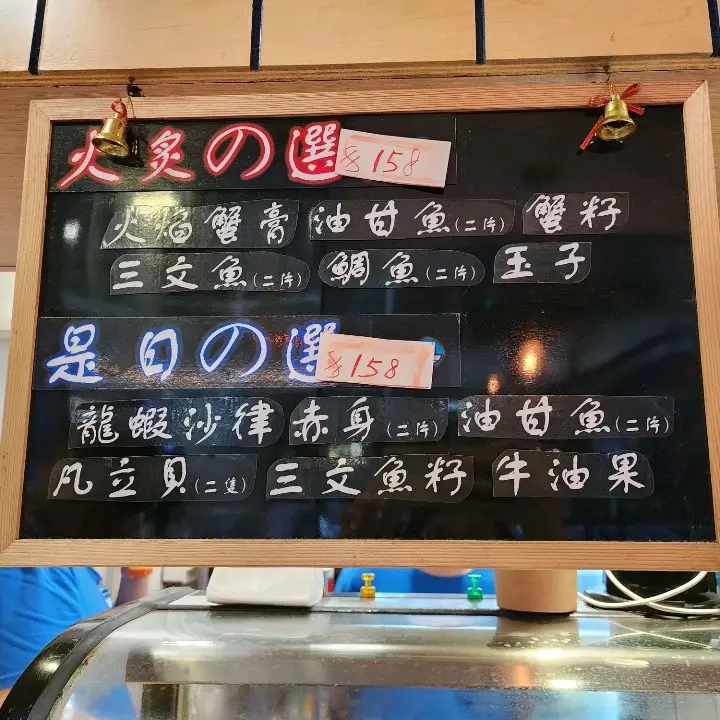 火炙の選 $158
火焰蟹膏 油甘魚(二片) 蟹籽
三文魚(二片) 鯛魚(二片) 玉子
是日の選 $158
龍蝦沙律 赤身(二片) 油甘魚(二片)
凡立貝(二隻) 三文魚籽 牛油果